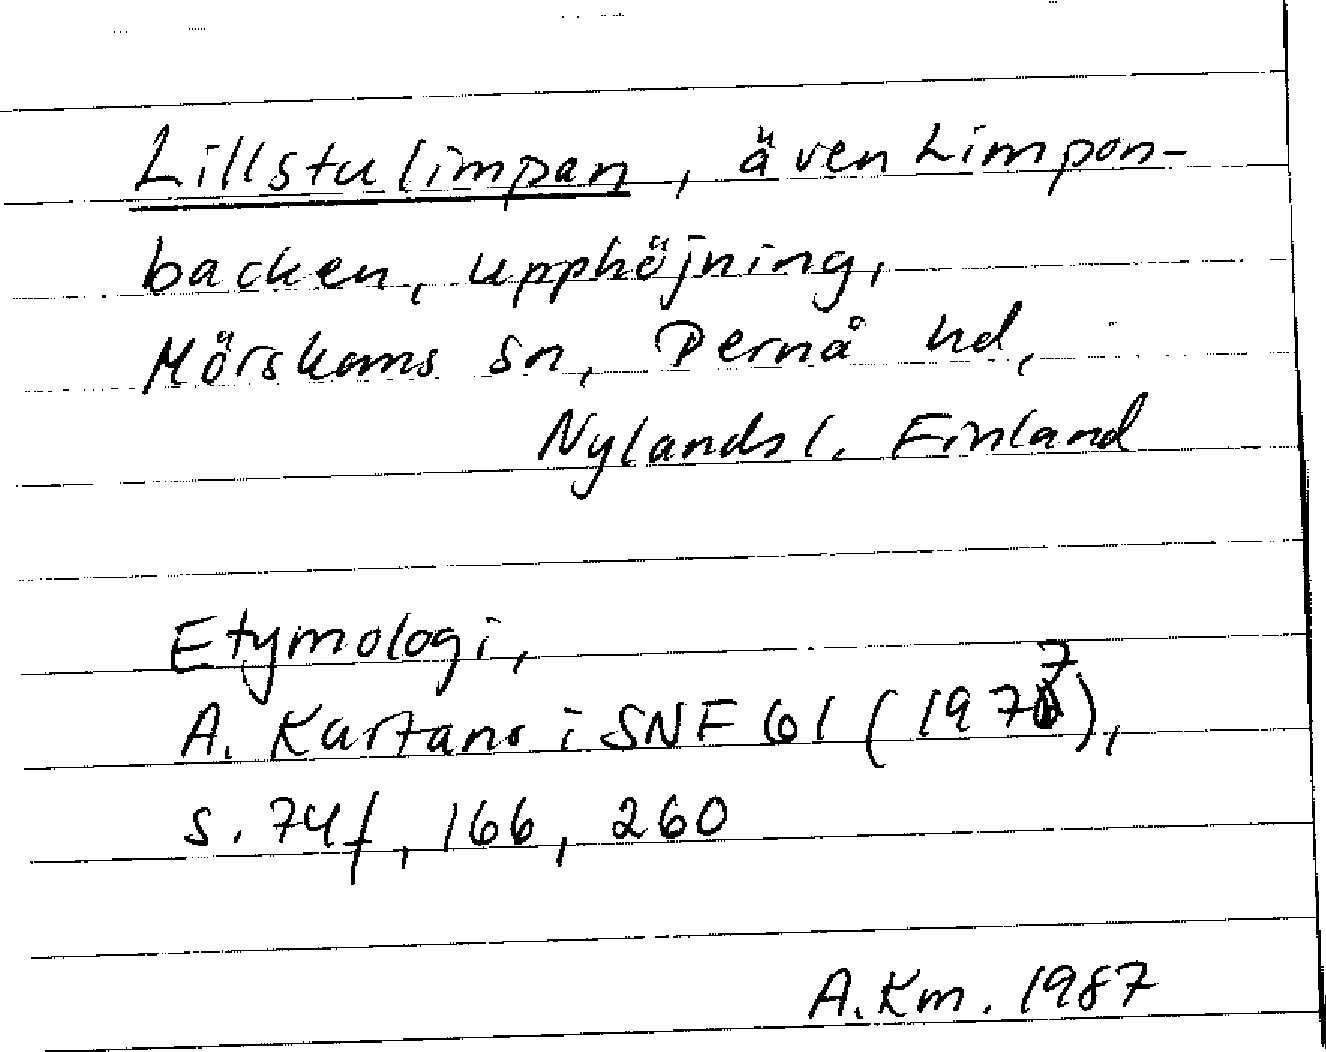 Lillstulimpan, även Limpon-
backen, upphöjning,
Mörskoms sn, Pernå hd,
Nylands l. Finland
Etymologi,
A. Karfano i SNF 61 (1977),
s. 74f, 166, 260
A.Km. 1987